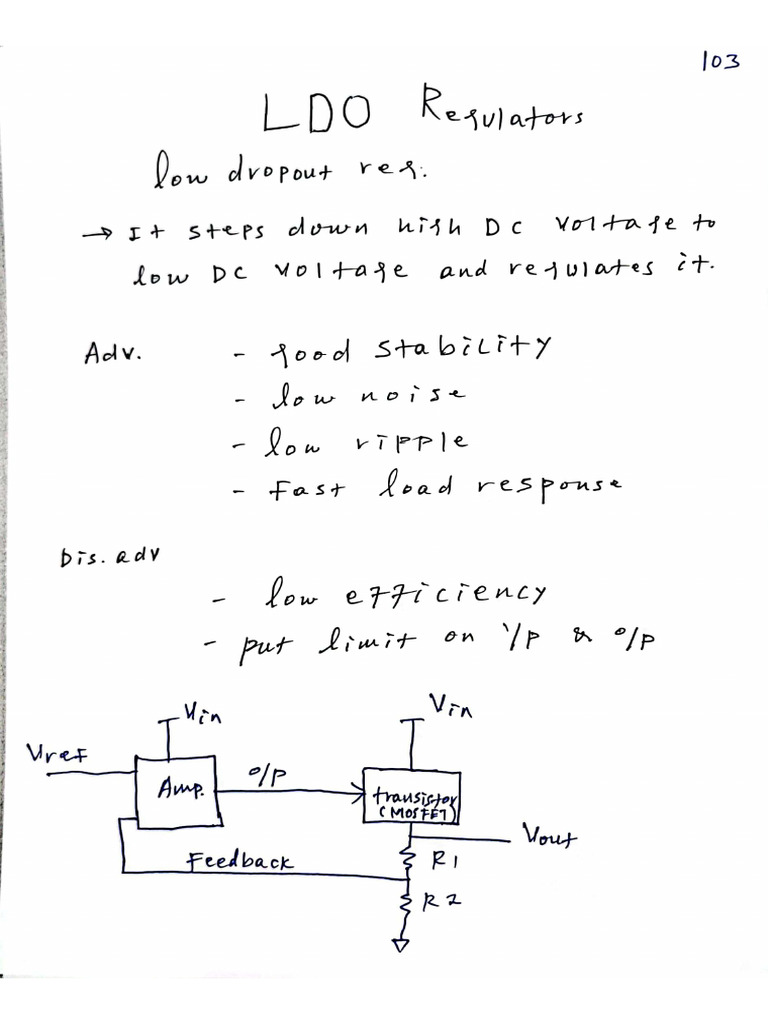 103
LDO Regulators
low dropout reg.
→ It steps down high DC voltage to
low DC voltage and regulates it.
Adv. - good stability
- low noise
- low ripple
- Fast load response
Dis. adv
- low efficiency
- put limit on I/P & O/P
Vin Vin
Vref
Amp. O/P transistor
(MOSFET)
Vout
Feedback R1
R2